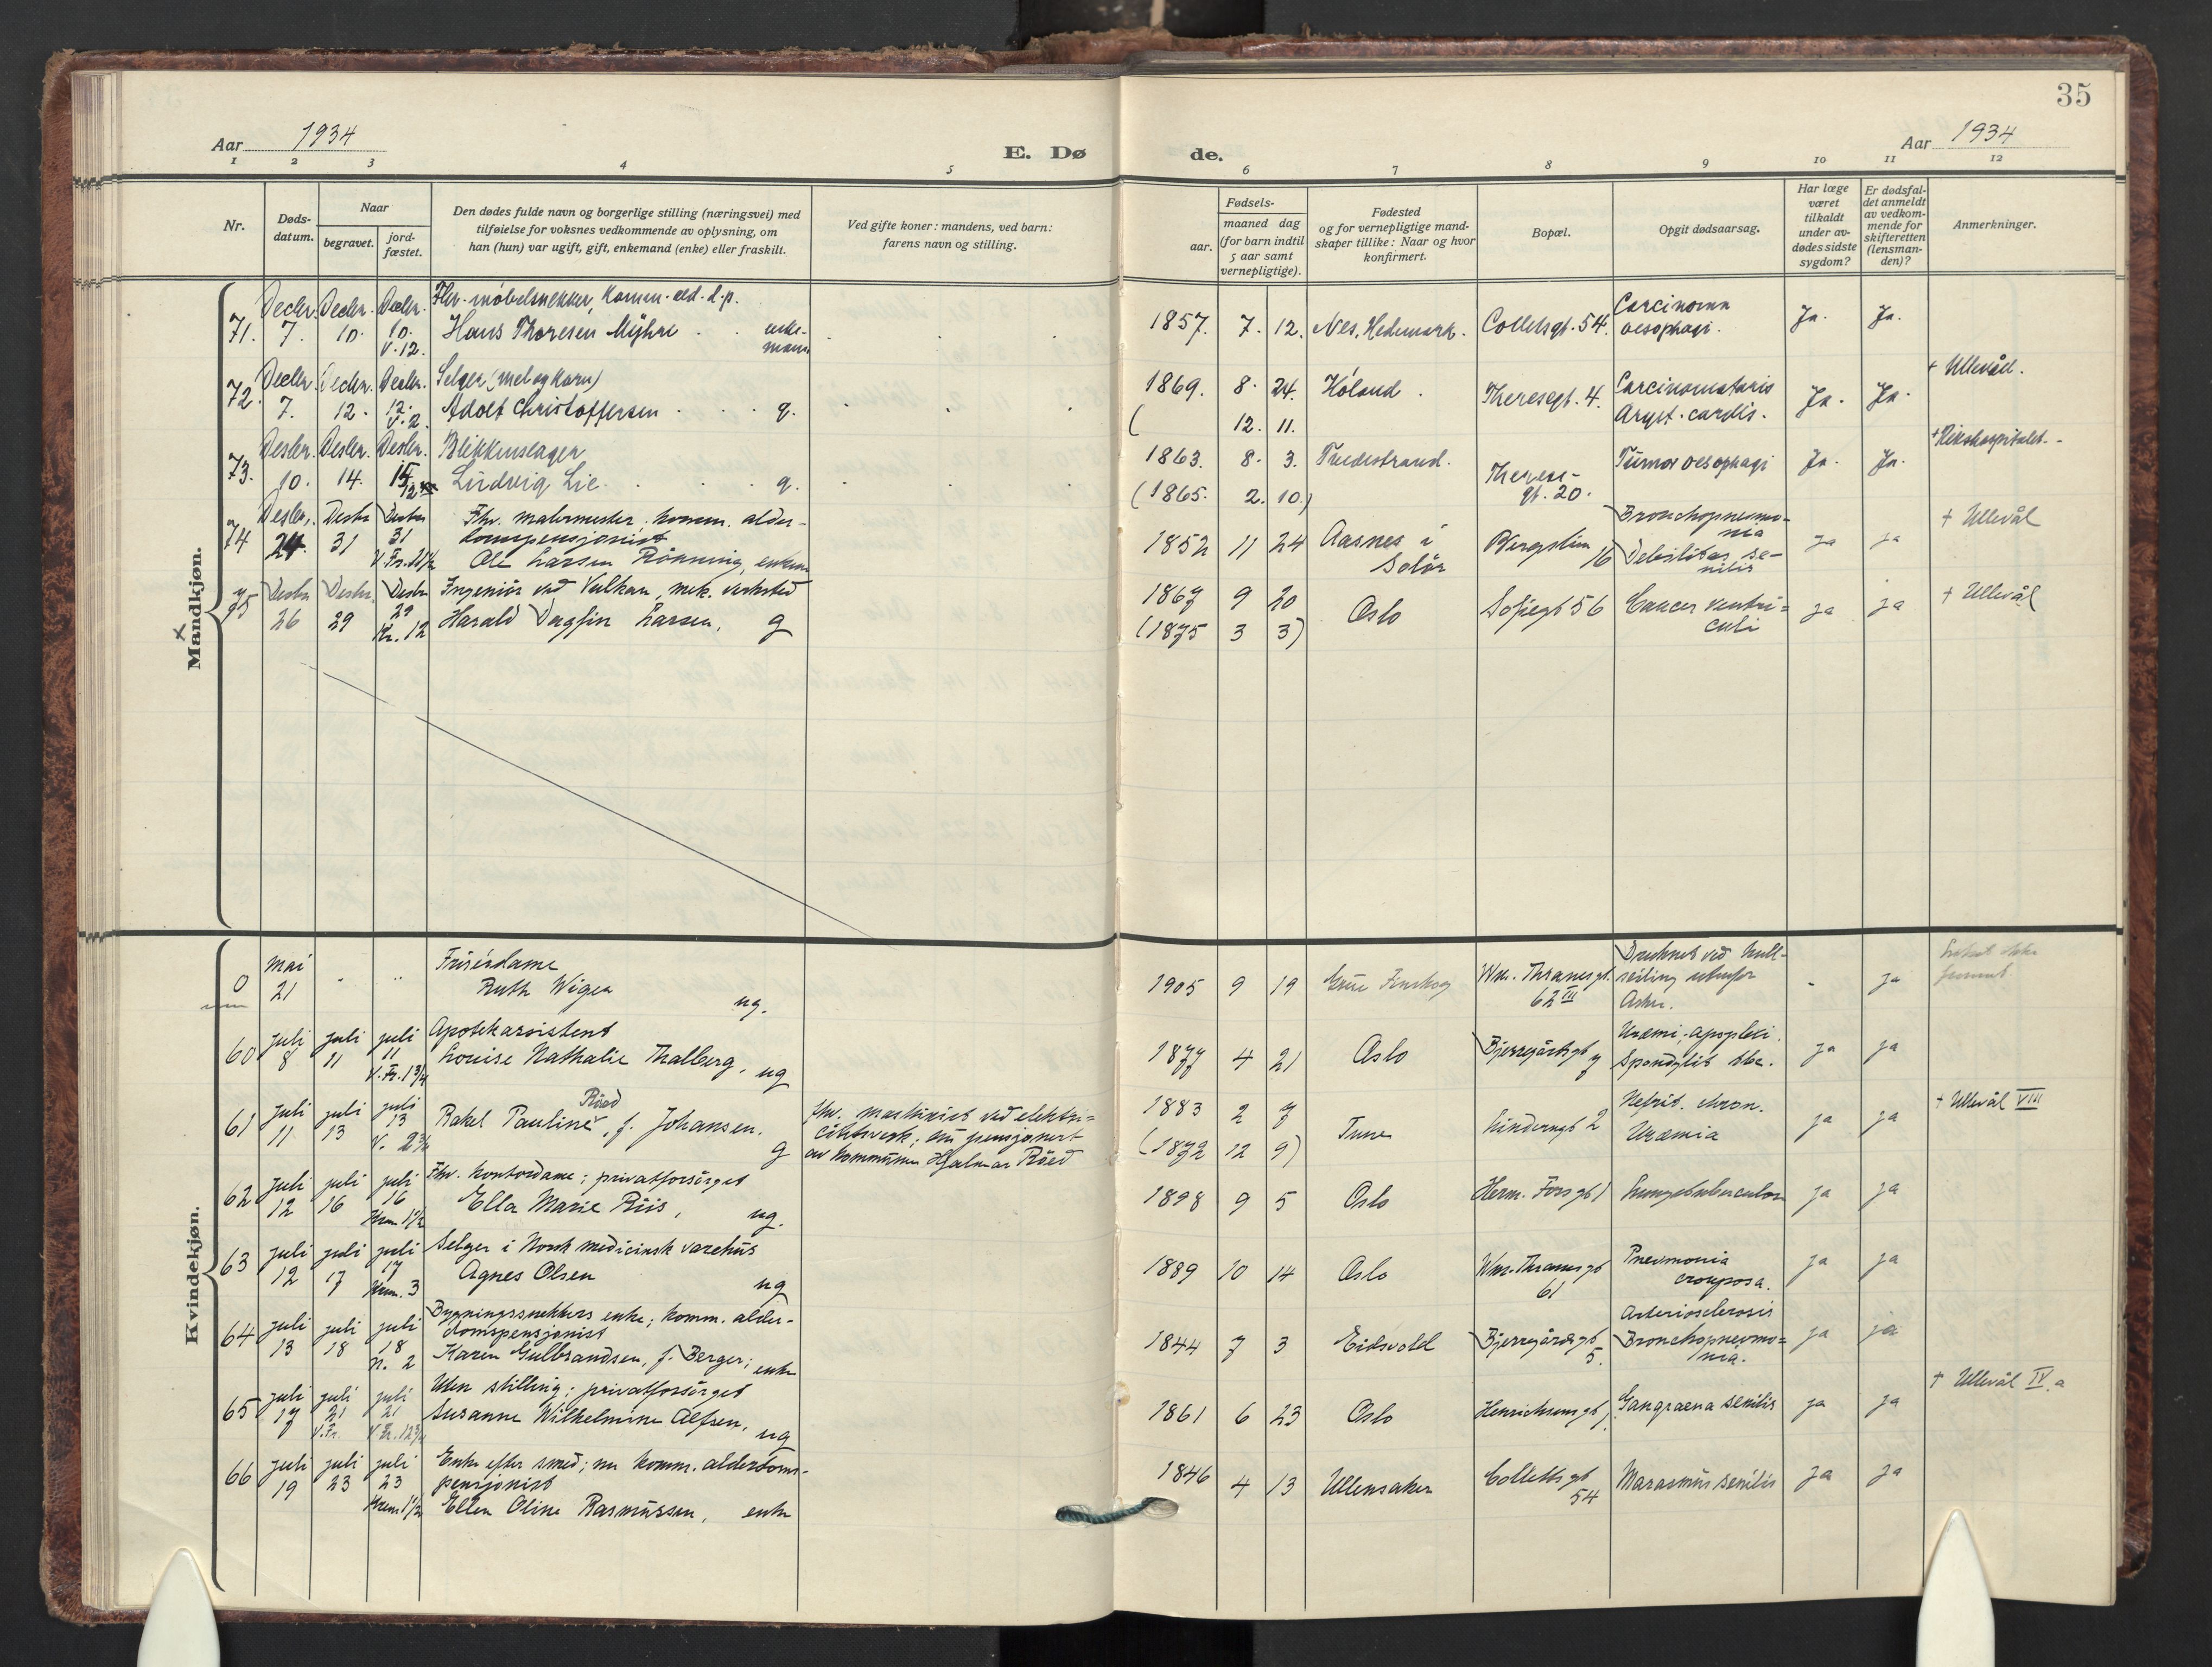 35
Aar 1934
E. Dø
de.
Aar 1934
1 2 3 4 5 6 7 8 9 10 11 12
Nr.
Døds-
datum.
Naar
begravet.
jord-
fæstet.
Den dødes fulde navn og borgerlige stilling (næringsvei) med
tilføielse for voksnes vedkommende av oplysning, om
han (hun) var ugift, gift, enkemand (enke) eller fraskilt.
Ved gifte koner: mandens, ved barn:
farens navn og stilling.
Fødsels-
aar.
maaned dag
(for barn indtil
5 aar samt
vernepligtige).
Fødested
og for vernepligtige mand-
skaper tillike: Naar og hvor
konfirmert.
Bopæl.
Opgit dødsaarsag.
Har læge
været
tilkaldt
under av-
dødes sidste
sygdom?
Er dødsfal-
det anmeldt
av vedkom-
mende for
skifteretten
(lensman-
den)?
Anmerkninger.
Mandkjøn.
71. Decbr. 7. Decbr. 10. Decbr. 10. V. 12.
Fhv. møbelsnekker, komm. ald. d. p.
Hans Thoresen Myhre enke-
mann
1857. 7. 12. Nes, Hedemark. Colletsgt. 54. Carcinoma
oesophagi. Ja. Ja.
72. Decbr. 7. Decbr. 12. Decbr. 12. V. 2.
Selger (mel og korn)
Adolf Christoffersen g.
1869. 8. 24. Høland. Theresegt. 4. Carcinomatosis Ja. Ja. + Ullevål.
( 12. 11. cardis.
73. Desbr. 10. Desbr. 14. Desbr. 15
Blikkenslager
Ludvig Lie g.
1863. 8. 3. Tvedestrand. Therese-
gt. 20. Tumor oesophagi Ja. Ja. + Rikshospitalet.
(1865. 2. 10.)
74 Desbr. 24. Desbr 31 Desbr 31 V. Fr. 11 1/2
Fhv. malermester, komm. alder-
domspensjonist
Ole Larsen Rönning, enkem
1852 11 24 Aasnes i
Solör Bergslien
16 Bronchopneumo-
nia
Debilitas se-
nilis ja ja + Ullevål
75 Desbr 26 Desbr. 29 Desbr 29 Kr. 12
Ingeniör ved Vulkan, mek. verksted
Harald Dagfin Larsen, g
1867 9 20 Oslo Sofiegt 56 Cancer ventri-
culi ja ja + Ullevål
(1875 3 3)
Kvindekjøn.
0 Mai 21
Frisérdame
Ruth Wiger ug.
1905 9 19 Grue Finskog Wm. Thranesgt.
62 III Druknet ved kull-
seiling utenfor
Asker. - ja
60 juli 8 juli 11 juli 11 V. Fr. 1 3/4
Apotekassistent
Louise Nathalie Thalberg, ug
1877 4 21 Oslo Bjerregårdsgt 7 Uræmi, apoplexi.
Spondylit tbc. ja ja
61 juli 11 juli 13 juli 13 V. 2 3/4
Röed
Rakel Pauline, f. Johansen. g
fhv. maskinist ved elektri-
citetsverk; nu pensjonert
av kommunen Hjalmar Röed
1883 2 7 Tune Linderngt 2 Nefrit. chron.
Uræmia ja ja + Ullevål VIII
(1872 12 9)
62 juli 12 juli 16 juli 16 Krem 1 1/2
Fhv. kontordame; privatforsörget
Ella Marie Riis, ug.
1898 9 5 Oslo Herm. Fossgt 1 Lungetuberculose ja ja
63 juli 12 juli 17 juli 17 Krem. 3
Selger i Norsk medicinsk varehus
Agnes Olsen ug
1889 10 14 Oslo Wm. Thranesgt
61 Pneumonia
crouposa. ja ja
64 juli 13 juli 18 juli 18 n. 2
Bygningssnekkers enke; komm. alder-
domspensjonist
Karen Gulbrandsen, f. Berger; enke
1844 7 3 Eidsvold Bjerregårdsgt
5. Arteriosclerosis
Bronchopneumo-
nia. ja ja
65 juli 17 juli 21 V. Fr. juli 21 V. Fr. 12 3/4
Uten stilling; privatforsörget
Susanne Wilhelmine Alfsen, ug
1861 6 23 Oslo Henrichsensgt 1 Gangraena senilis ja ja + Ullevål IV. a
66 juli 19 juli 23 juli 23 Krem 1 1/2
Enke efter smed; nu komm. alderdoms-
pensjonist
Ellen Oline Rasmussen, enke
1846 4 13 Ullensaker Collettsgt
54 Marasmus senilis ja ja